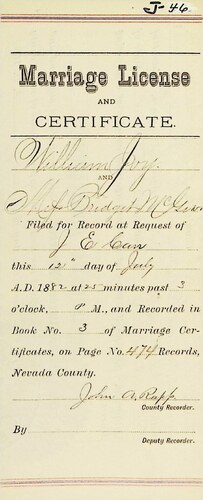 J-46
Marriage License
AND
CERTIFICATE.
William Joy
AND
Bridget
Filed for Record at Request of
J E Carr
this 12" day of July
A.D. 1882 at 25 minutes past 3
o'clock, P M., and Recorded in
Book No. 3 of Marriage Cer-
tificates, on Page No. 474 Records,
Nevada County.
John A. Rapp
County Recorder.
By
Deputy Recorder.